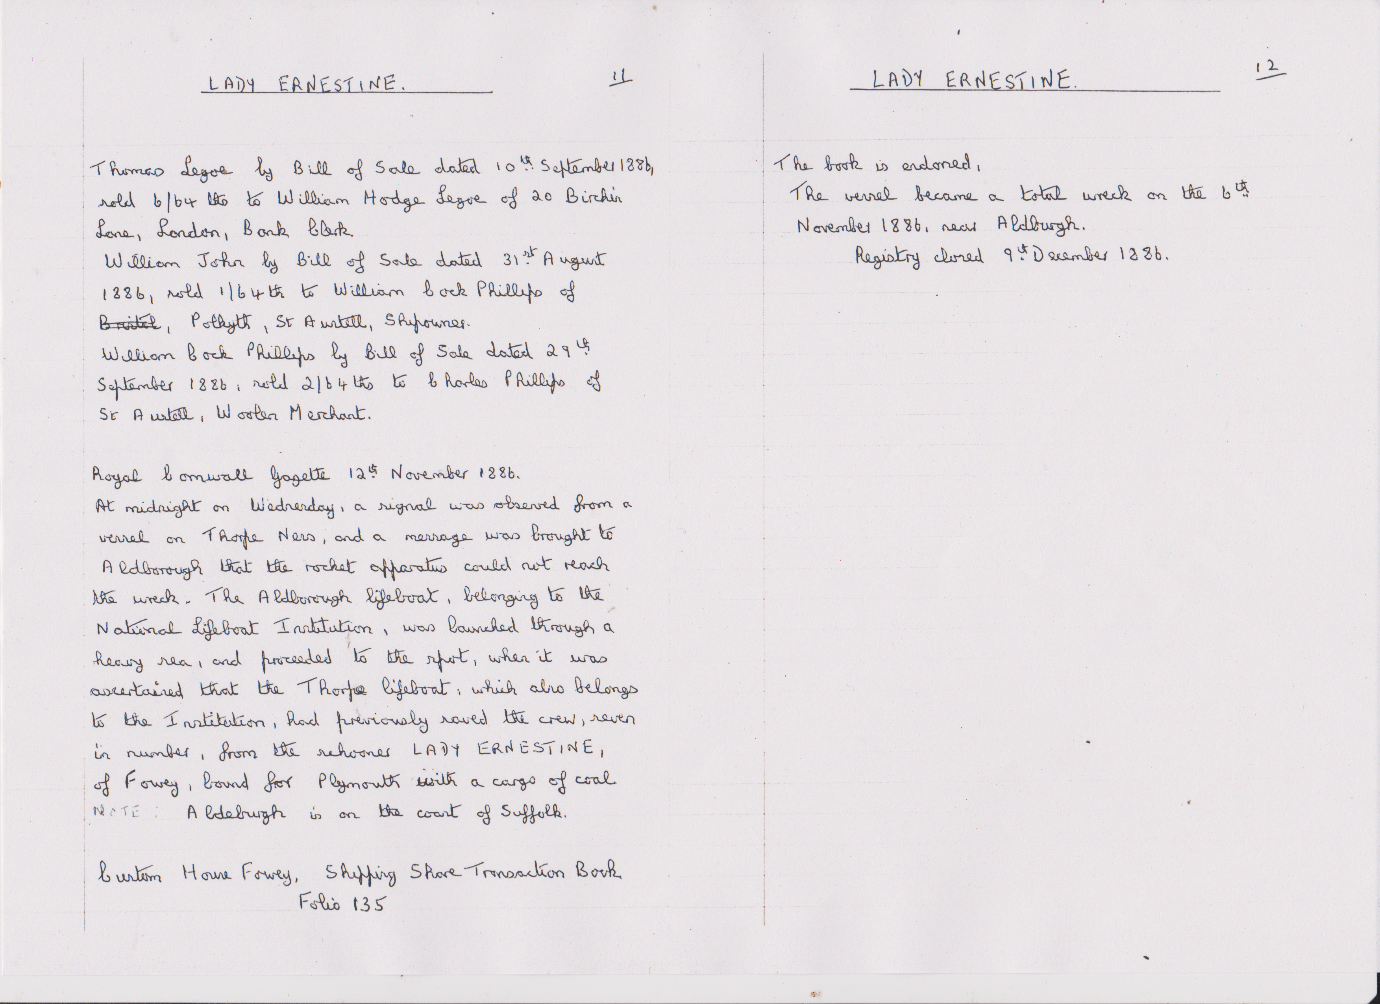 LADY ERNESTINE. 11
Thomas Legoe by Bill of Sale dated 10th September 1886,
sold 6/64ths to William Hodge Legoe of 20 Birchin
Lane, London, Bank Clerk.
William John by Bill of Sale dated 31st August
1886, sold 1/64th to William Cock Phillips of
Bristol, Polkyth, St Austell, Shipowner.
William Cock Phillips by Bill of Sale dated 29th
September 1886, sold 2/64ths to Charles Phillips of
St Austell, Woolen Merchant.
Royal Cornwall Gazette 12th November 1886.
At midnight on Wednesday, a signal was observed from a
vessel on Thorpe Ness, and a message was brought to
Aldborough that the rocket apparatus could not reach
the wreck. The Aldborough lifeboat, belonging to the
National Lifeboat Institution, was launched through a
heavy sea, and proceeded to the spot, when it was
ascertained that the Thorpe lifeboat, which also belongs
to the Institution, had previously saved the crew, seven
in number, from the schooner LADY ERNESTINE,
of Fowey, bound for Plymouth with a cargo of coal
NOTE: Aldeburgh is on the coast of Suffolk.
Custom House Fowey, Shipping Share Transaction Book
Folio 135
LADY ERNESTINE. 12
The book is endorsed,
The vessel became a total wreck on the 6th
November 1886, near Aldburgh.
Registry closed 9th December 1886.